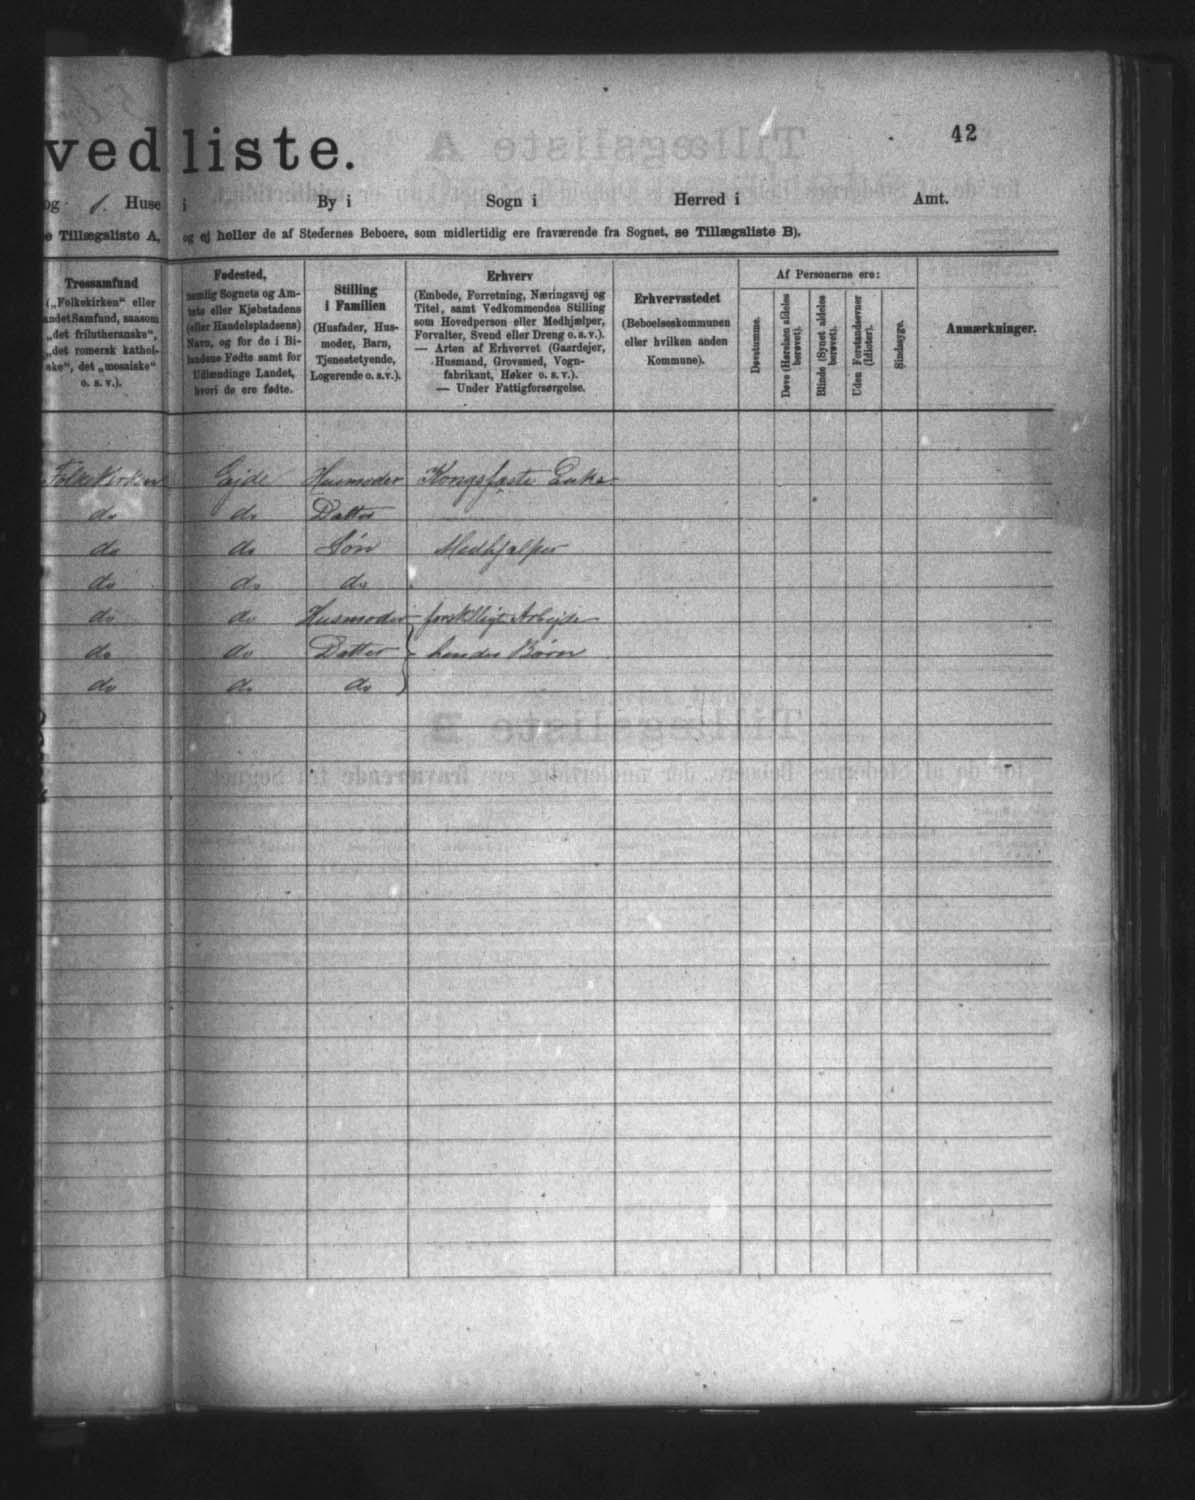 vedliste.
42
og 1. Huse i By i Sogn i Herred i Amt.
e Tillægsliste A, og ej heller de af Stedernes Beboere, som midlertidig ere fraværende fra Sognet, se Tillægsliste B).
Trossamfund
(„Folkekirken“ eller
andet Samfund, saasom
„det frilutheranske“,
„det romersk kathol-
ske“, det „mosaiske“
o. s. v.).
Fødested,
nemlig Sognets og Am-
tets eller Kjøbstadens
(eller Handelspladsens)
Navn, og for de i Bi-
landene Fødte samt for
Udlændinge Landet,
hvori de ere fødte.
Stilling
i Familien
(Husfader, Hus-
moder, Barn,
Tjenestetyende,
Logerende o. s.v.).
Erhverv
(Embede, Forretning, Næringsvej og
Titel, samt Vedkommendes Stilling
som Hovedperson eller Medhjælper,
Forvalter, Svend eller Dreng o. s. v.).
— Arten af Erhvervet (Gaardejer,
Husmand, Grovsmed, Vogn-
fabrikant, Høker o. s. v.).
— Under Fattigforsørgelse.
Erhvervsstedet
(Beboelseskommunen
eller hvilken anden
Kommune).
Af Personerne ere:
Døvstumme.
Døve (Hørelsen aldeles
berøvet).
Blinde (Synet aldeles
berøvet).
Uden Forstandsevner
(Idioter).
Sindssyge.
Anmærkninger.
Folkekirken Ejde Husmoder Kongsfæste Enke
do do Datter
do do Søn Medhjælper
do do do
do do Husmoder forskelligt Arbejde
do do Datter } hendes Børn
do do do
Tillægsliste A
Tillægsliste B